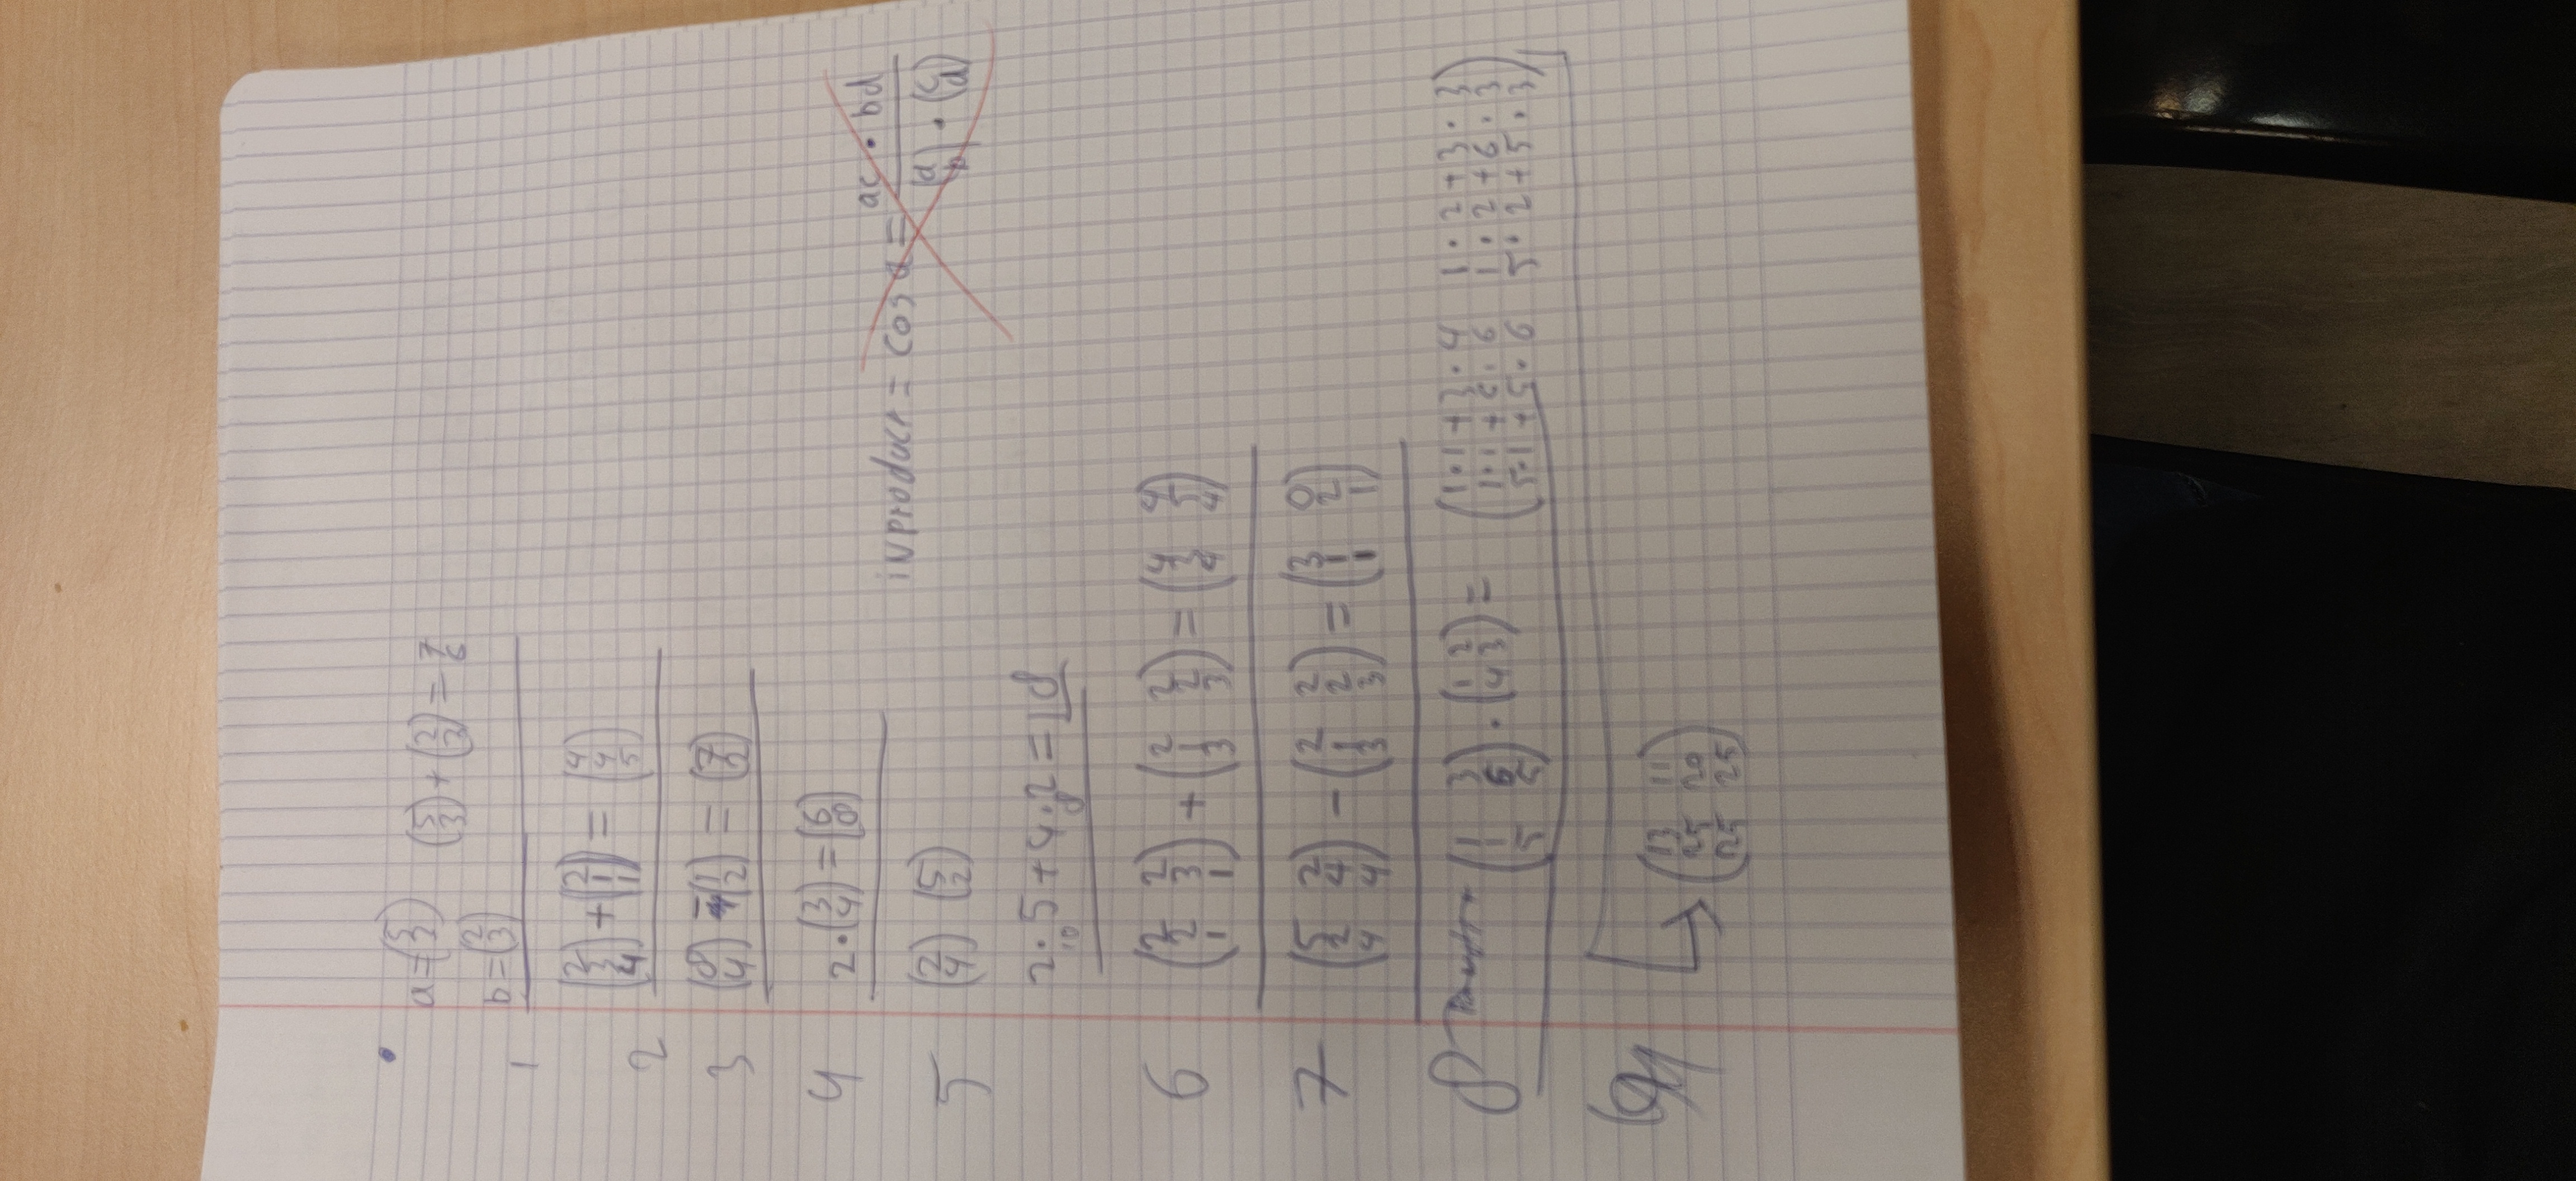 a = (5 3) (5 3) + (2 3) = 7 6
b = (2 3)
1
2 (2 3 4) + (2 1 1) = (4 4 5)
3 (8 4) - (1 2) = (7 2)
4 2 · (3 4) = (6 8)
inproduct = cos a = ac · bd / (a b) · (c d)
5 (2 4) (5 2)
2 · 5 + 4 · 2 = 18
10 8
6 (2 2 / 2 3 / 1 1) + (2 2 / 1 2 / 3 3) = (4 4 / 3 5 / 4 4)
7 (5 2 / 2 4 / 4 4) - (2 2 / 1 2 / 3 3) = (3 0 / 1 2 / 1 1)
8 (1 3 / 1 6 / 5 5) · (1 2 / 4 3) = (1·1+3·4 1·2+3·3 / 1·1+6·6 1·2+6·3 / 5·1+5·6 5·2+5·3)
(13 11 / 25 20 / 25 25)